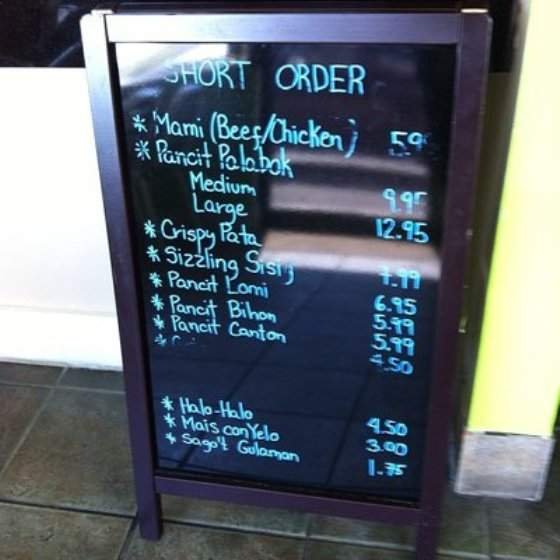 SHORT ORDER
* Mami (Beef/Chicken) 5.9
* Pancit Palabok
Medium 9.95
Large 12.95
* Crispy Pata
* Sizzling Sisig 7.99
* Pancit Lomi 6.95
* Pancit Bihon 5.99
* Pancit Canton 5.99
* 4.50
* Halo-Halo 4.50
* Mais con Yelo 3.00
* Sago't Gulaman 1.75